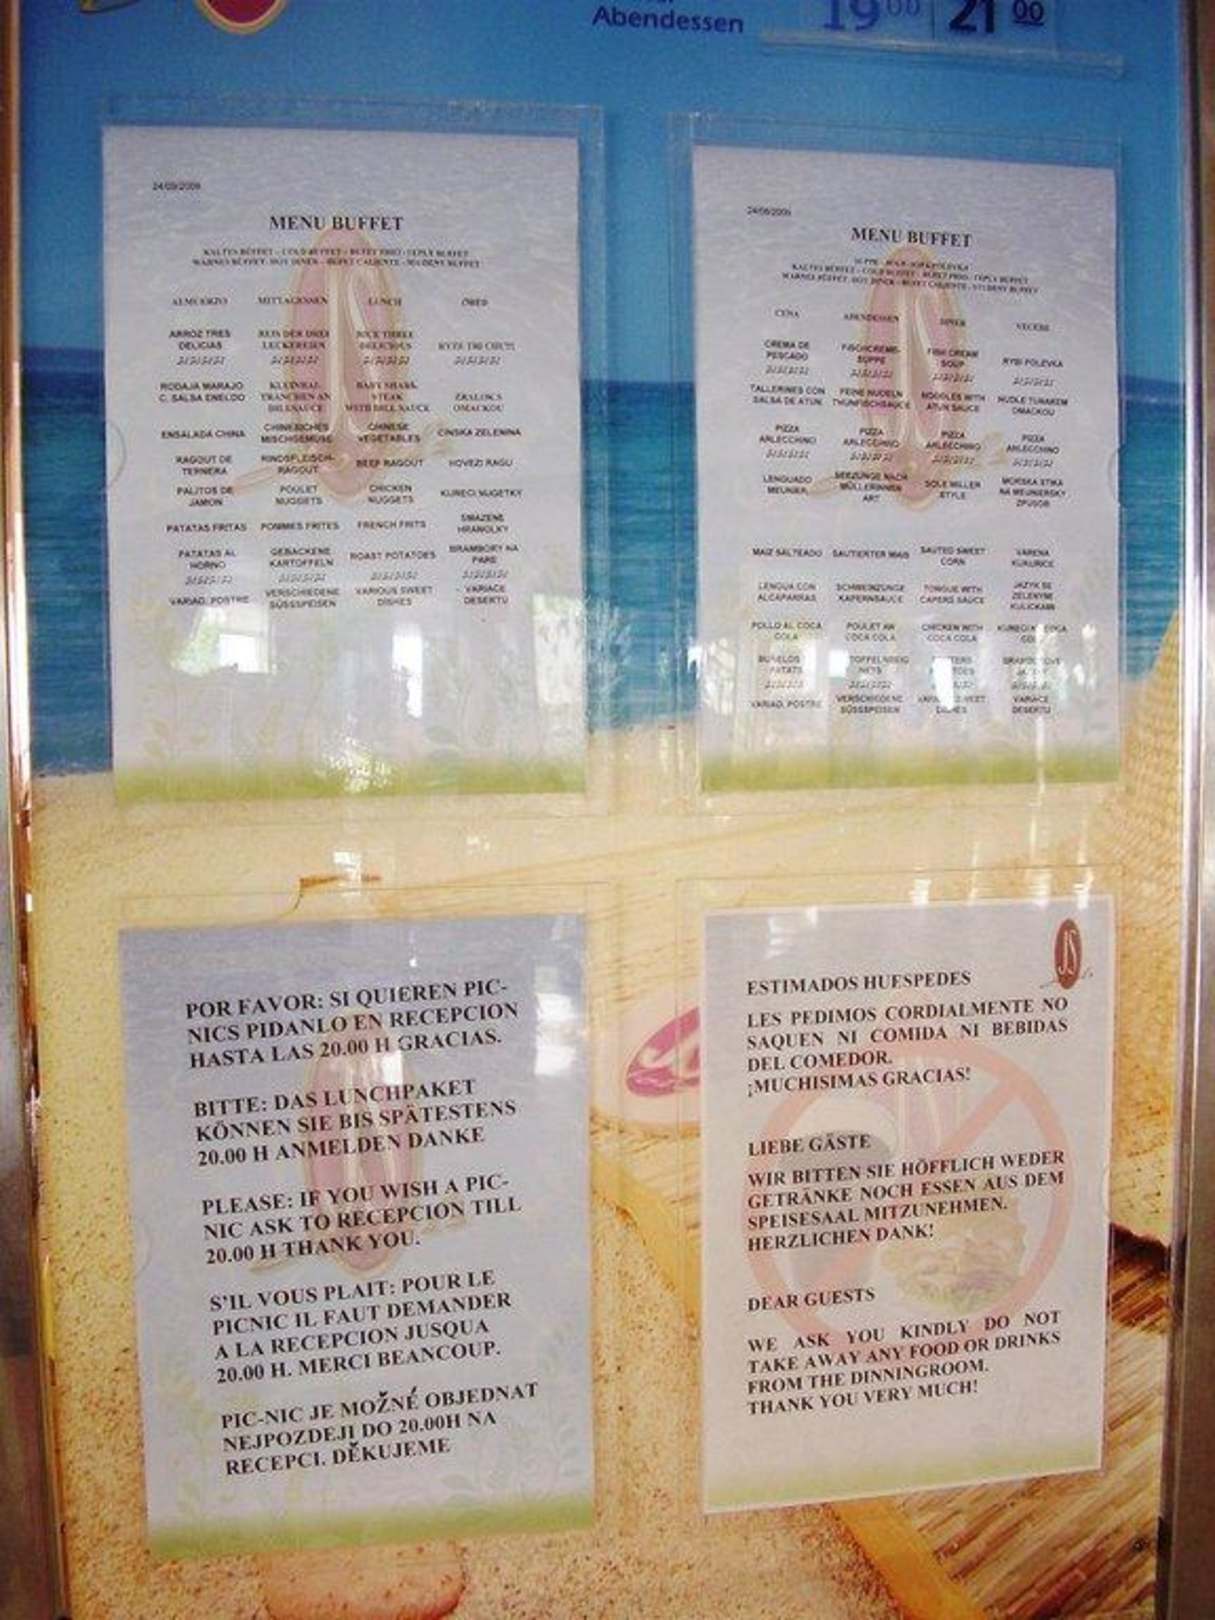 Abendessen 19 00 21 00
24/09/2009
MENU BUFFET
KALTES BUFFET - COLD BUFFET - BUFET FRIO - TEPLY BUFFET
WARMES BUFFET - HOT DINER - BUFET CALIENTE - STUDENY BUFFET
ALMUERZO MITTAGESSEN LUNCH OBED
ARROZ TRES REIS DER DREI RICE THREE
DELICIAS LECKEREIEN DELICIOUS RYZE TRI CHUTI
RODAJA MARAJO KLEINHAI- BABY SHARK
C. SALSA ENELDO TRANCHEN AN STEAK ZRALOK S
DILLSAUCE WITH DILL SAUCE OMACKOU
ENSALADA CHINA CHINESICHES CHINESE CINSKA ZELENINA
MISCHGEMUSE VEGETABLES
RAGOUT DE RINDSFLEISCH- BEEF RAGOUT HOVEZI RAGU
TERNERA RAGOUT
PALITOS DE POULET CHICKEN KURECI NUGETKY
JAMON NUGGETS NUGGETS
PATATAS FRITAS POMMES FRITES FRENCH FRITS SMAZENE
HRANOLKY
PATATAS AL GEBACKENE ROAST POTATOES BRAMBORY NA
HORNO KARTOFFELN PARE
VARIAD. POSTRE VERSCHIEDENE VARIOUS SWEET VARIACE
SÜSSSPEISEN DISHES DESERTU
MENU BUFFET
KALTES BUFFET - COLD BUFFET - BUFET FRIO - TEPLY BUFFET
WARMES BUFFET - HOT DINER - BUFET CALIENTE - STUDENY BUFFET
CENA ABENDESSEN DINER VECERE
CREMA DE FISCHCREME- FISH CREAM RYBI POLEVKA
PESCADO SUPPE SOUP
TALLERINES CON FEINE NUDELN NOODLES WITH NUDLE TUNAKEM
SALSA DE ATUN. THUNFISCHSAUCE ATUN SAUCE OMACKOU
PIZZA PIZZA PIZZA PIZZA
ARLECCHINO ARLECCHINO ARLECCHINO ARLECCHINO
LENGUADO SEEZUNGE NACH SOLE MILLER MORSKA STIKA
MEUNIER MÜLLERINNEN STYLE NA MEUNIERSKY
ART ZPUSOB
MAIZ SALTEADO SAUTIERTER MAIS SAUTED SWEET VARENA
CORN KUKURICE
LENGUA CON SCHWEINZUNGE TONGUE WITH JAZYK SE
ALCAPARRAS KAPERNSAUCE CAPERS SAUCE ZELENYMI
KULICKAMI
POLLO AL COCA POULET AN CHICKEN WITH
COLA COCA COLA COCA COLA
VARIAD. POSTRE VERSCHIEDENE VARIACE
SÜSSSPEISEN DESERTU
POR FAVOR: SI QUIEREN PIC-
NICS PIDANLO EN RECEPCION
HASTA LAS 20.00 H GRACIAS.
BITTE: DAS LUNCHPAKET
KÖNNEN SIE BIS SPÄTESTENS
20.00 H ANMELDEN DANKE
PLEASE: IF YOU WISH A PIC-
NIC ASK TO RECEPCION TILL
20.00 H THANK YOU.
S'IL VOUS PLAIT: POUR LE
PICNIC IL FAUT DEMANDER
A LA RECEPCION JUSQUA
20.00 H. MERCI BEANCOUP.
PIC-NIC JE MOŽNÉ OBJEDNAT
NEJPOZDEJI DO 20.00H NA
RECEPCI. DĚKUJEME
JS
ESTIMADOS HUESPEDES
LES PEDIMOS CORDIALMENTE NO
SAQUEN NI COMIDA NI BEBIDAS
DEL COMEDOR.
¡MUCHISIMAS GRACIAS!
LIEBE GÄSTE
WIR BITTEN SIE HÖFFLICH WEDER
GETRÄNKE NOCH ESSEN AUS DEM
SPEISESAAL MITZUNEHMEN.
HERZLICHEN DANK!
DEAR GUESTS
WE ASK YOU KINDLY DO NOT
TAKE AWAY ANY FOOD OR DRINKS
FROM THE DINNINGROOM.
THANK YOU VERY MUCH!